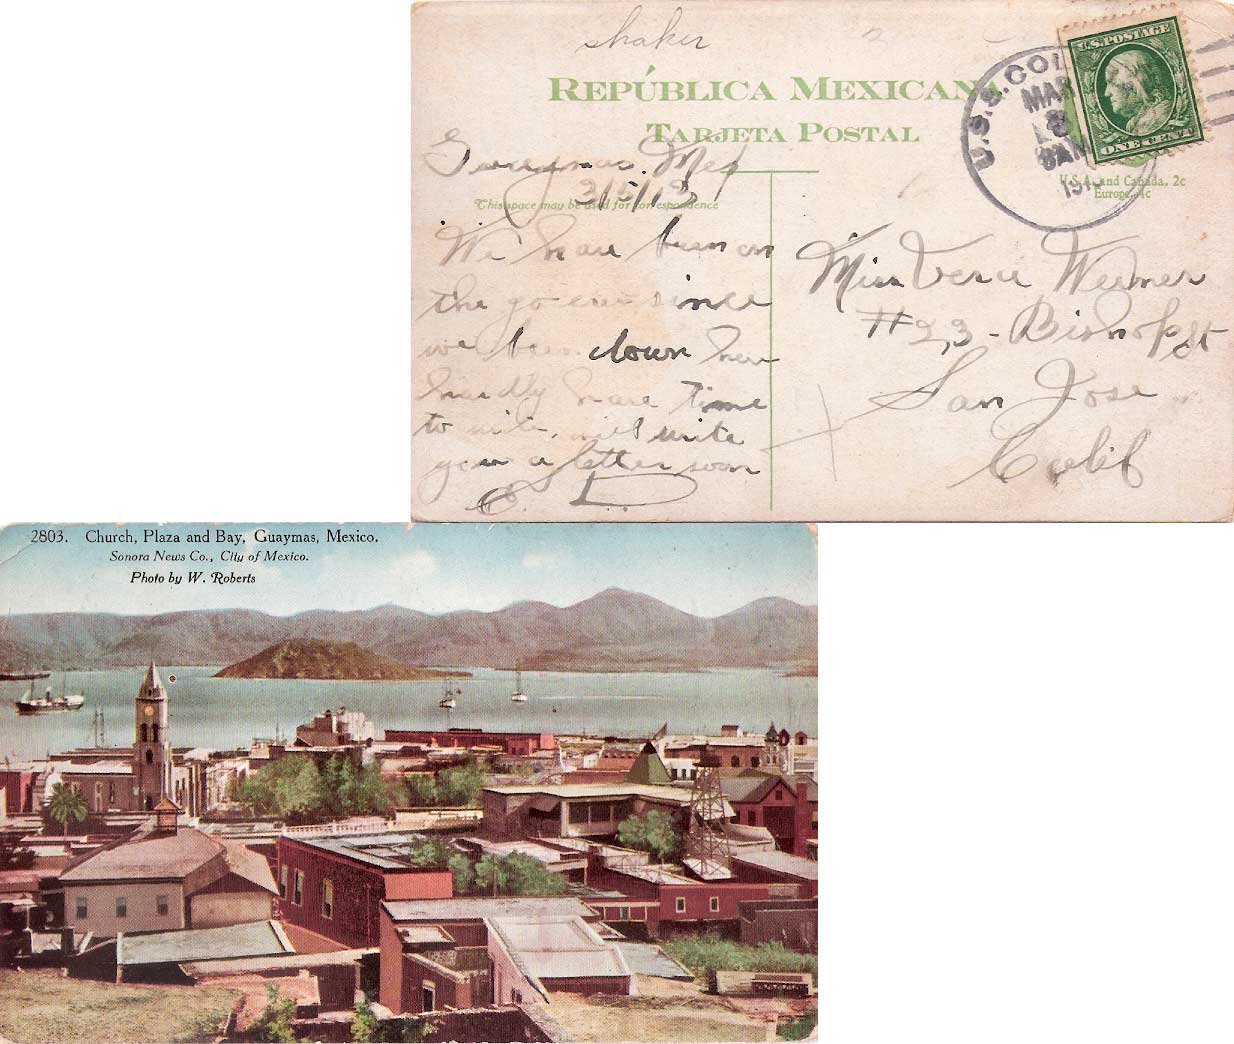 shaker
REPÚBLICA MEXICANA
TARJETA POSTAL
U.S. POSTAGE
ONE CENT
U.S.S. COL
MAR
8
AM
191
U.S.A. and Canada, 2c
Europe, 4c
Guaymas. Mex
3/5/13
This space may be used for correspondence
We have been on
the go ever since
we been down here
hardly have time
to write, will write
you a letter soon
Miss Vera Weimer
#23 - Bishop St
San Jose
Calif
2803. Church, Plaza and Bay, Guaymas, Mexico.
Sonora News Co., City of Mexico.
Photo by W. Roberts